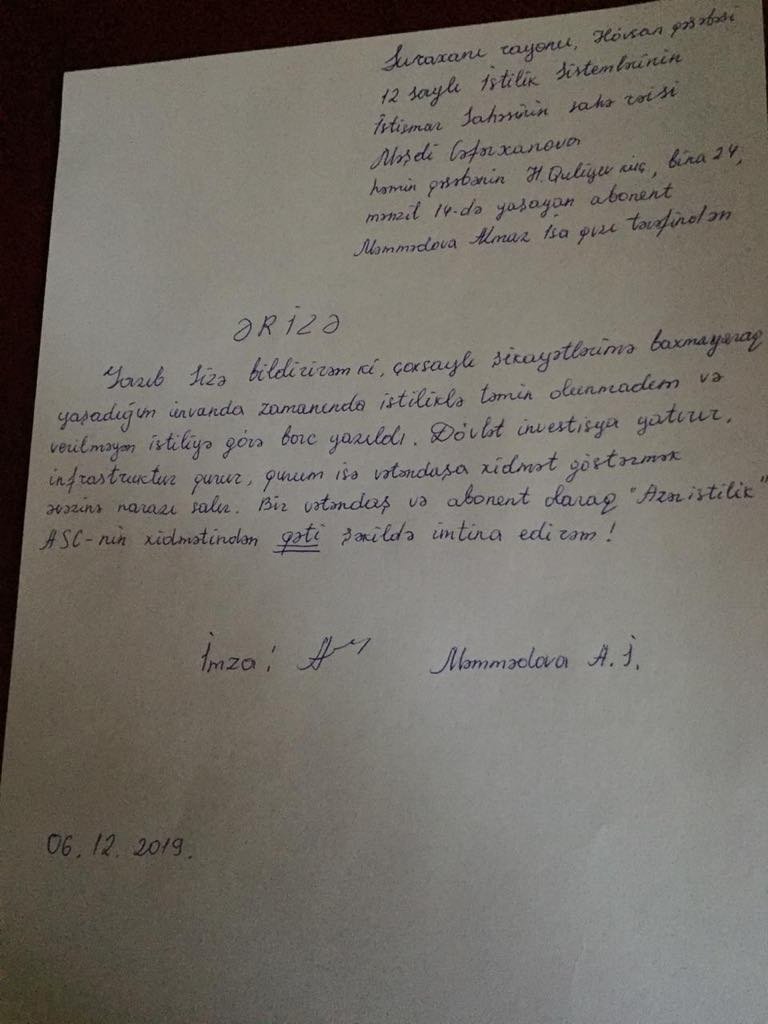 Suraxanı rayonu, Hövsan qəsəbəsi
12 saylı İstilik Sistemlərinin
İstismar Sahəsinin sahə rəisi
Məşdi Cəfərxanova
həmin qəsəbənin H.Quliyev küç, bina 24,
mənzil 14-də yaşayan abonent
Məmmədova Almaz İsa qızı tərəfindən
ƏRİZƏ
Yazıb Sizə bildirirəm ki, çoxsaylı şikayətlərimə baxmayaraq
yaşadığım ünvanda zamanında istiliklə təmin olunmadım və
verilməyən istiliyə görə borc yazıldı. Dövlət investisya yatırır,
infrastruktur qurur, qurum isə vətəndaşa xidmət göstərmək
əvəzinə narazı salır. Bir vətəndaş və abonent olaraq "Azəristilik"
ASC-nin xidmətindən qəti şəkildə imtina edirəm!
İmza: Məmmədova A.İ.
06.12.2019.